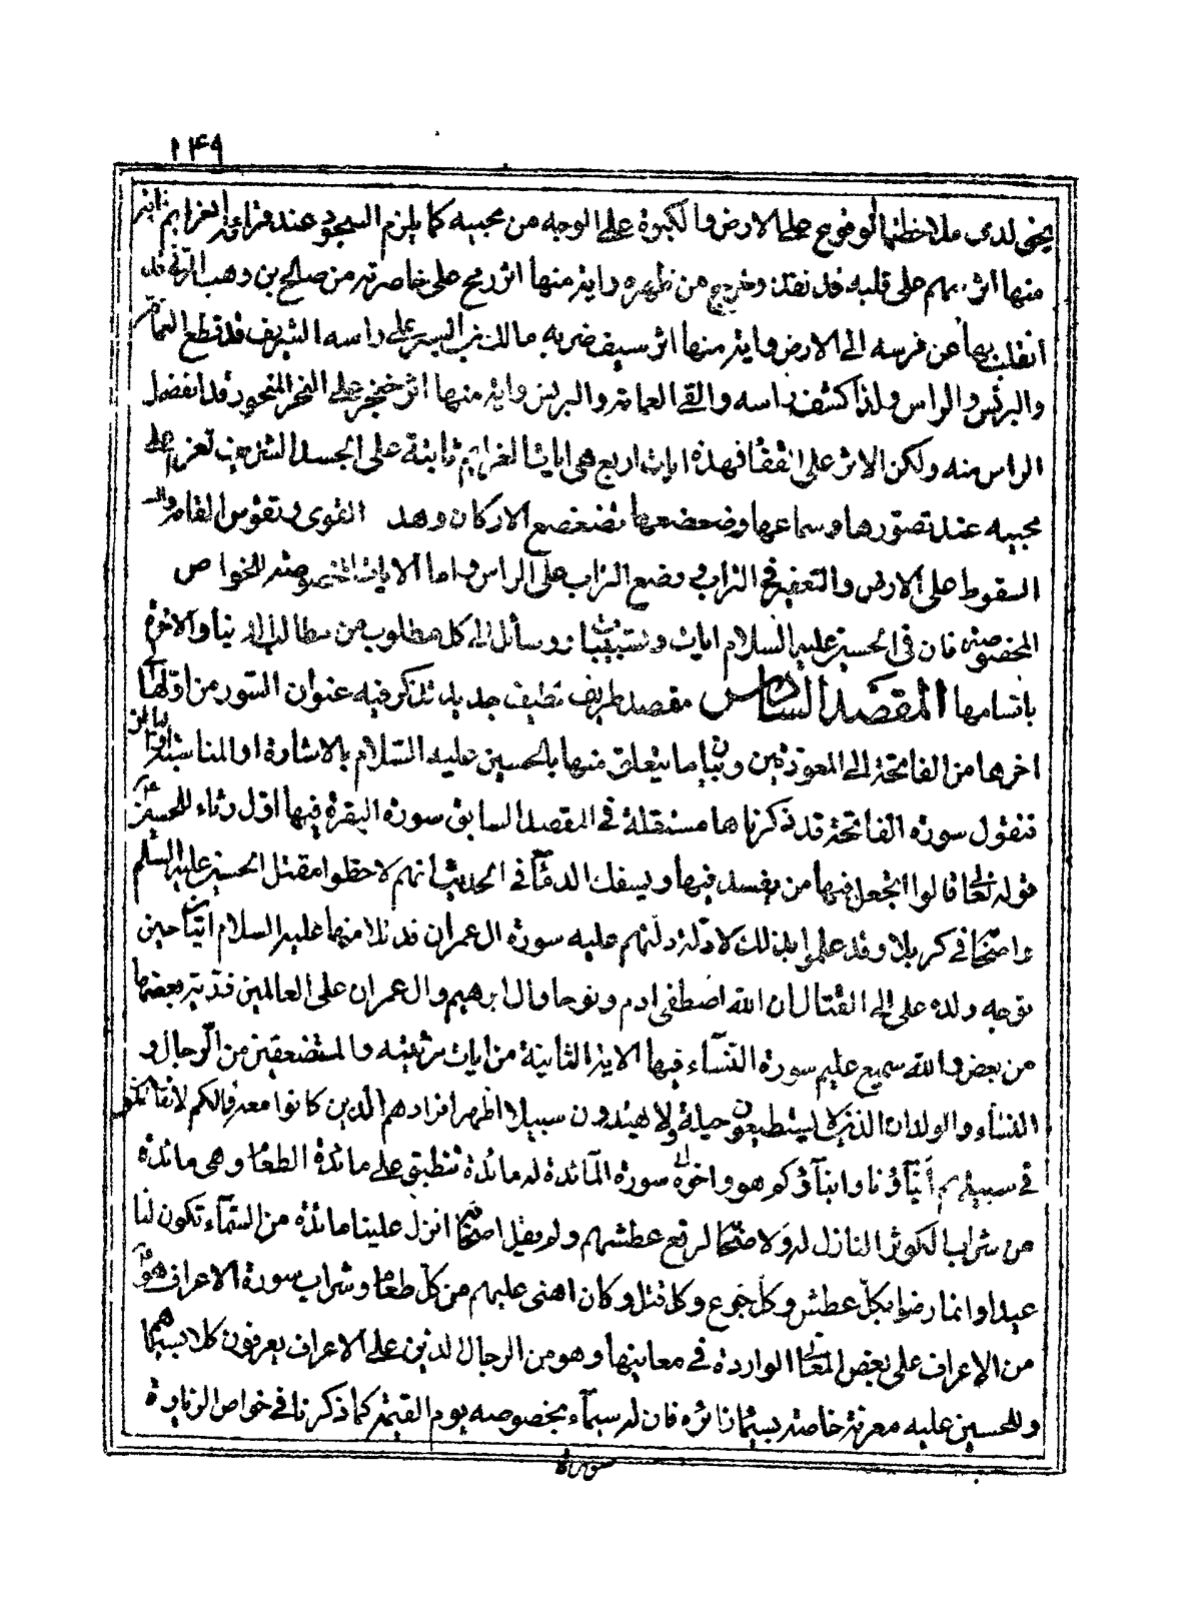 ٢٤٩
لدى ملاحظتها الوقوع على الارض والكبوة على الوجه من محبيه كما يلزم السجود عند قرائة العزايم واية
منها اثر سهم على قلبه قد نفذ وخرج من ظهره واية منها اثر رمح على خاصرته من صالح بن وهب المزنى قد
انقلب بها عن فرسه الى الارض واية منها اثر سيف ضربه مالك بن اليسر على راسه الشريف قد قطع العمامة
والبرنس والراس ولذا كشف راسه والقى العمامة والبرنس واية منها اثر خنجر على النحر المنحور قد انفصل
الراس منه ولكن الاثر على القفا فهذه ايات اربع هى ايات العزايم ثابتة على الجسد الشريف تعزم على
محبيه عند تصورها وسماعها وضعضعها تضعضع الاركان وهد القوى وتقوس القامة و
السقوط على الارض والتعفير فى التراب وضع التراب على الراس واما الايات المخصوصة للخواص
المخصوصة فان فى الحسين عليه السلام ايات وتسبيبات ووسائل الى كل مطلوب من مطالب الدنيا والاخرة
باقسامها المقصد السادس مقصد طريف لطيف جديد نذكر فيه عنوان السور من اولها الى
اخرها من الفاتحة الى المعوذتين وبيان ما يتعلق منها بالحسين عليه السلام بالاشارة او المناسبة
فنقول سورة الفاتحة قد ذكرناها مستقلة فى المقصد السابق سورة البقرة فيها اول رثاء للحسين
قوله تعالى قالوا اتجعل فيها من يفسد فيها ويسفك الدماء فى الحديث انهم لاحظوا مقتل الحسين عليه السلم
واصحابه فى كربلا وقد علموا بذلك لادلة دلتهم عليه سورة ال عمران قد تلا منها عليه السلام ايتان حين
توجه ولده على الى القتال ان الله اصطفى ادم ونوحا وال ابرهيم وال عمران على العالمين ذرية بعضها
من بعض والله سميع عليم سورة النساء فيها الاية الثانية من ايات مرثيته والمستضعفين من الرجال و
النساء والولدان الذين لا يستطيعون حيلة ولا يهتدون سبيلا اظهر افرادهم الذين كانوا معه فمالكم لا تقاتلون
فى سبيلهم ابناؤنا وابناؤكم هو واخوه سورة المائدة له مائدة تنطبق على مائدة الطعام وهى مائدة
من شراب الكوثر النازل له ولاصحابه لرفع عطشهم ولم يقل اصحابه انزل علينا مائدة من السماء تكون لنا
عيدا وانما رضوا بكل عطش وكل جوع وكل قتل وكان اهنى عليهم من كل طعام وشراب سورة الاعراف هو
من الاعراف على بعض المعانى الواردة فى معانيها وهو من الرجال الذين على الاعراف يعرفون كلا بسيماهم
وللحسين عليه معرفة خاصة بسيما زائره فان له سيماء مخصوصه يوم القيمة كما ذكرنا فى خواص الزيارة
سورة